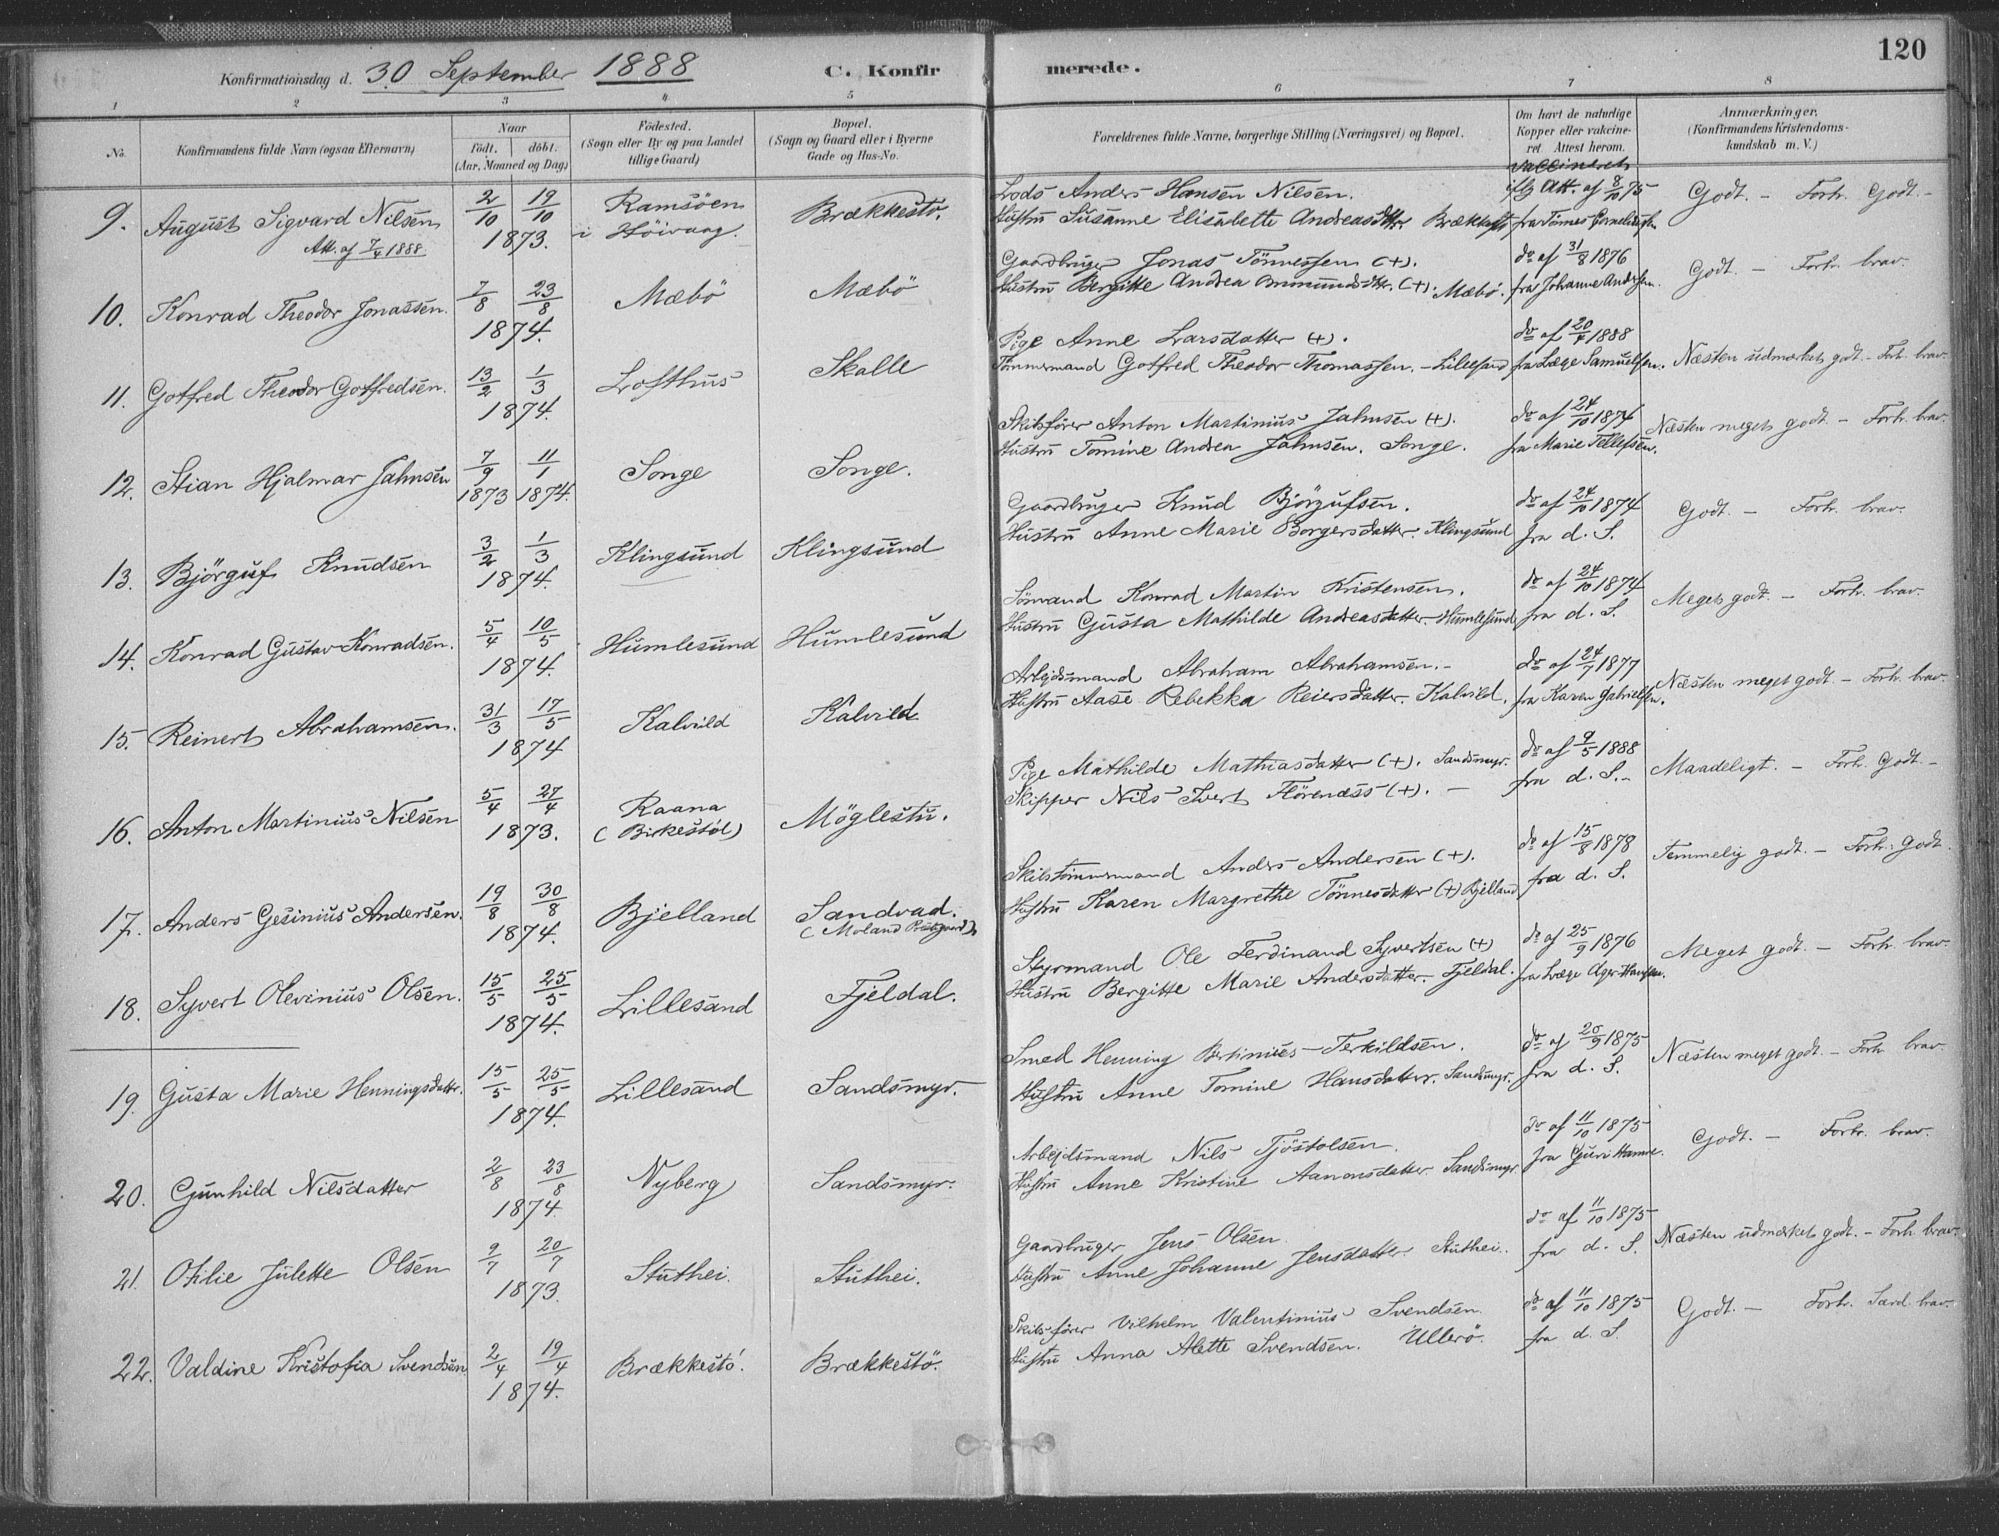 120
Konfirmationsdag d. 30 September 1888 C. Konfirmerede.
1 2 3 4 5 6 7 8
No. Konfirmandens fulde Navn (ogsaa Efternavn) Naar født. døbt. (Aar, Maaned og Dag) Fødested. (Sogn eller By og paa Landet tillige Gaard) Bopæl. (Sogn og Gaard eller i Byerne Gade og Hus-No.) Forældrenes fulde Navne, borgerlige Stilling (Næringsvei) og Bopæl. Om havt de naturlige Kopper eller vakcineret. Attest herom. Anmærkninger. (Konfirmandens Kristendomskundskab m. V.)
9. August Sigvard Nilsen 2/10 19/10 1873. Ramsöen i Höivaag. Brækkestö.
Att. af 7/4 1888
Lods Anders Hansen Nilsen.
Hustru Susanne Elisabette Andreasdtr Brækkestö
vaccineret iflg Att. af 8/10 75 fra Tönnes
Godt. – Forh. Godt. –
10. Konrad Theodor Jonassen. 7/8 23/8 1874. Mæbö Mæbö
Gaardbruger Jonas Tönnessen (+).
Hustru Bergitte Andrea Osmundsdtr. (+). Mæbö.
do af 31/8 1876 fra Johanne Andersen.
Godt. – Forh. brav.
11. Gotfred Theodor Gotfredsen. 13/2 1/3 1874. Lofthus Skalle
Pige Anne Larsdatter (+).
Tömmermand Gotfred Theodor Thomassen. – Lillesand
do af 20/4 1888 fra Læge Samuelsen.
Næsten udmærket godt. – Forh. brav.
12. Stian Hjalmar Jahnsen 7/9 1873 11/1 1874. Songe Songe.
Skibsförer Anton Martinius Jahnsen (+).
Hustru Tomine Andrea Jahnsen. Songe.
do af 24/10 1874 fra Marie Tellefsen.
Næsten meget godt – Forh. brav.
13. Björguf Knudsen 3/2 1/3 1874. Klingsund Klingsund
Gaardbruger Knud Björgufsen.
Hustru Anne Marie Borgersdatter. Klingsund
do af 24/10 1874 fra d. S.
Godt. – Forh. brav.
14. Konrad Gustav Konradsen. 5/4 10/5 1874. Humlesund Humlesund
Sömand Konrad Martin Kristensen.
Hustru Gusta Mathilde Andreasdatter – Humlesund
do af 24/10 1874 fra d. S.
Meget godt. – Forh. brav.
15. Reinert Abrahamsen. 31/3 17/5 1874 Kalvild Kalvild
Arbejdsmand Abraham Abrahamsen. –
Hustru Aase Rebekka Reiersdatter. Kalvild.
do af 24/7 1877 fra Karen Gabrielsen.
Næsten meget godt. – Forh. brav.
16. Anton Martinius Nilsen 5/4 27/4 1873. Raana (Birkestöl) Möglestu.
Pige Mathilde Mathiasdatter (+). Sandsmyr.
Skipper Nils Ivert Flörenæss (+). –
do af 9/5 1888 fra d. S. –
Maadeligt. – Forh. Godt. –
17. Anders Gesinius Andersen. 19/8 30/8 1874. Bjelland Sandvad. (Moland)
Skibstömmermand Anders Andersen (+).
Hustru Karen Margrethe Tönnesdatter (+) Bjelland
do af 15/8 1878 fra d. S.
Temmelig godt. – Forh. Godt.
18. Syvert Olevinius Olsen. 15/5 25/5 1874. Lillesand Fjeldal.
Styrmand Ole Ferdinand Syvertsen (+)
Hustru Bergitte Marie Andersdatter. Fjeldal.
do af 25/9 1876 fra Læge
Meget godt. – Forh. brav.
19. Gusta Marie Henningsdatter. 15/5 25/5 1874. Lillesand Sandsmyr.
Smed Henning Bertinius Terkildsen.
Hustru Anne Tomine Hansdatter. Sandsmyr.
do af 20/9 1875 fra d. S.
Næsten meget godt. – Forh. brav.
20. Gunhild Nilsdatter 2/8 23/8 1874 Nyberg Sandsmyr.
Arbejdsmand Nils Tjöstolsen.
Hustru Anne Kristine Aanonsdatter. Sandsmyr.
do af 11/10 1875 fra Guri Hamre.
Godt. – Forh. brav.
21. Otilie Julette Olsen 9/7 20/7 1873. Stuthei. Stuthei.
Gaardbruger Jens Olsen.
Hustru Anne Johanne Jensdatter. Stuthei.
do af 11/10 1875 fra d. S.
Næsten udmærket godt. – Forh. brav.
22. Valdine Kristofia Svendsen 2/4 19/4 1874. Brækkestö. Brækkestö.
Skibsförer Vilhelm Valentinius Svendsen.
Hustru Anna Alette Svendsen. Ullerö.
do af 11/10 1875 fra d. S.
Godt. – Forh. Særd. brav.